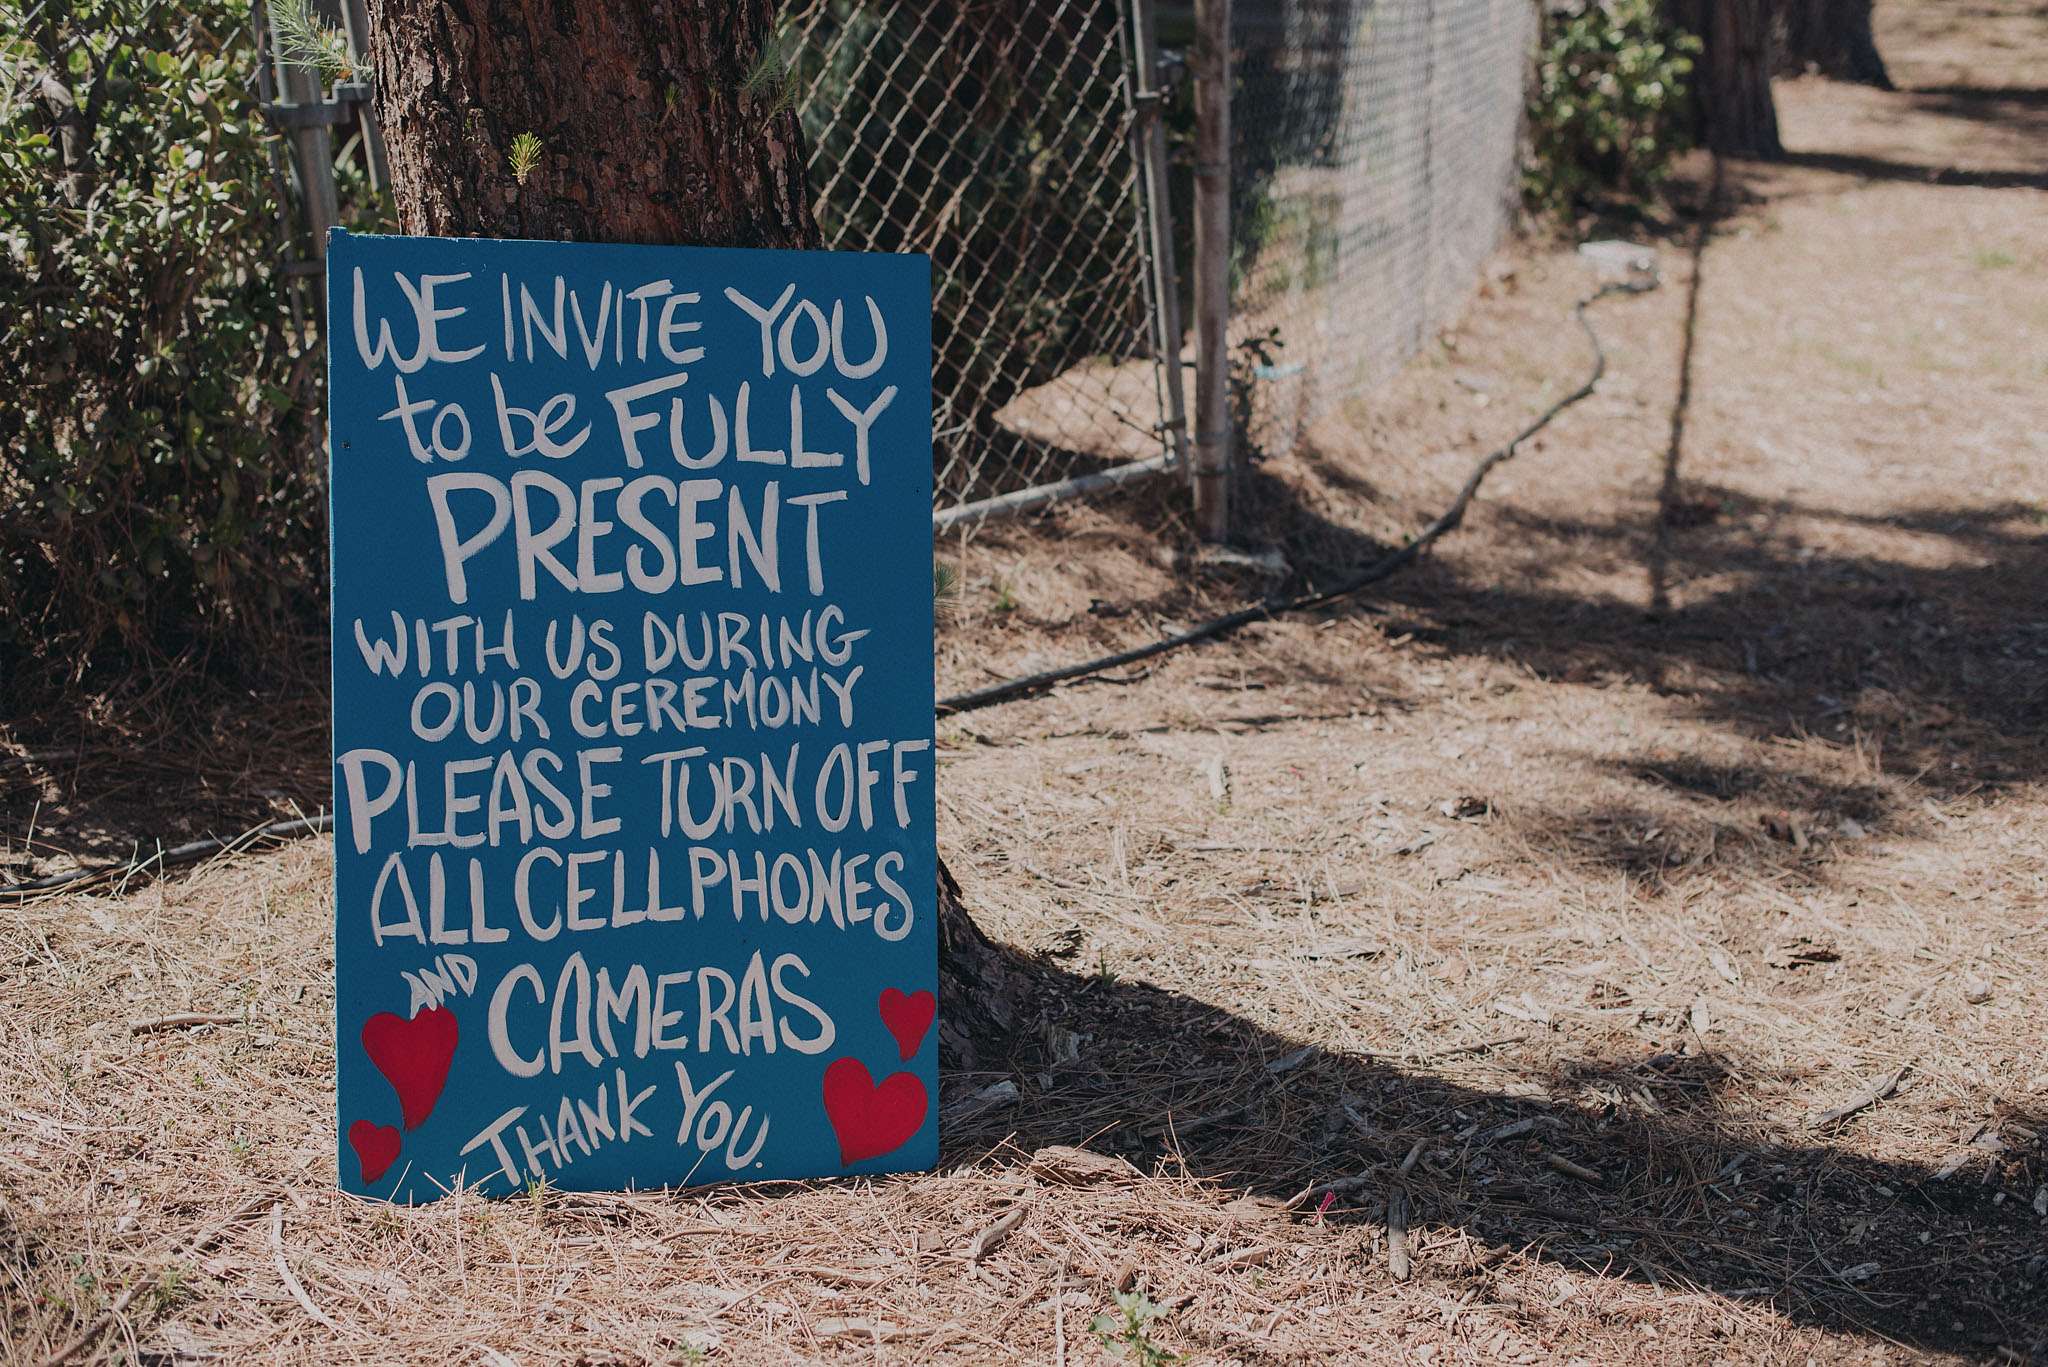 WE INVITE YOU
to be FULLY
PRESENT
WITH US DURING
OUR CEREMONY
PLEASE TURN OFF
ALL CELL PHONES
AND CAMERAS
THANK YOU.